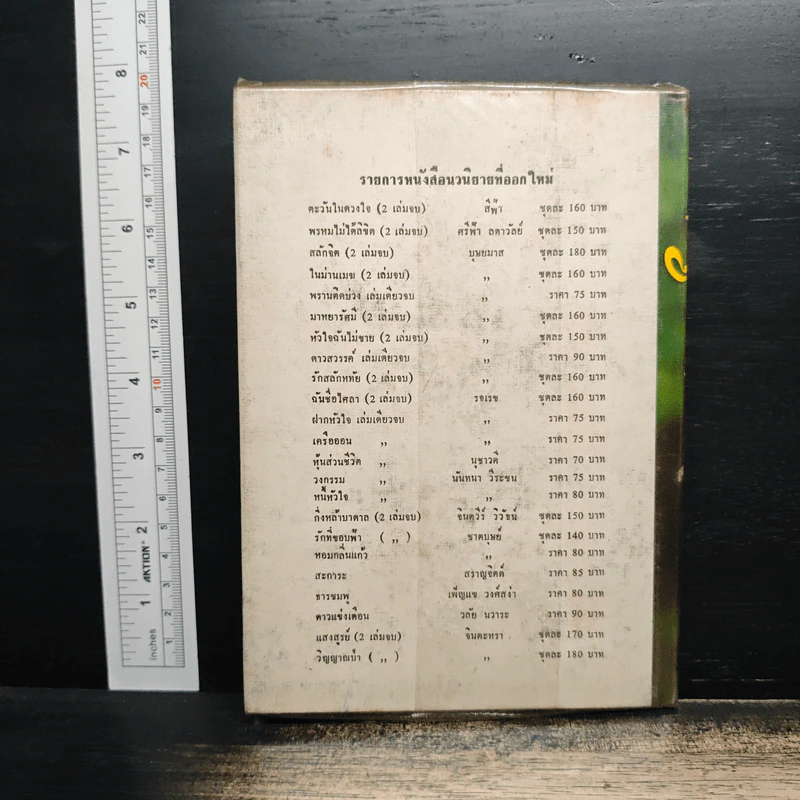 รายการหนังสือนวนิยายที่ออกใหม่
ตะวันในดวงใจ (2 เล่มจบ) สีฟ้า ชุดละ 160 บาท
พรหมไม่ได้ลิขิต (2 เล่มจบ) ศรีฟ้า ลดาวัลย์ ชุดละ 150 บาท
สลักจิต (2 เล่มจบ) บุษยมาส ชุดละ 180 บาท
ในม่านเมฆ (2 เล่มจบ) ,, ชุดละ 160 บาท
พรานติดบ่วง เล่มเดียวจบ ,, ราคา 75 บาท
มาหยารัศมี (2 เล่มจบ) ,, ชุดละ 160 บาท
หัวใจฉันไม่ขาย (2 เล่มจบ) ,, ชุดละ 150 บาท
ดาวสวรรค์ เล่มเดียวจบ ,, ราคา 90 บาท
รักสลักหทัย (2 เล่มจบ) ,, ชุดละ 160 บาท
ฉันชื่อไศลา (2 เล่มจบ) รจเรข ชุดละ 160 บาท
ฝากหัวใจ เล่มเดียวจบ ,, ราคา 75 บาท
เครือออน ,, ,, ราคา 75 บาท
หุ้นส่วนชีวิต ,, นุชาวดี ราคา 70 บาท
วงกรรม ,, นันทนา วีระชน ราคา 75 บาท
หนี้หัวใจ ,, ,, ราคา 80 บาท
กิ่งหล้าบาดาล (2 เล่มจบ) จินตวีร์ วิวัธน์ ชุดละ 150 บาท
รักที่ขอบฟ้า ( ,, ) ชาตบุษย์ ชุดละ 140 บาท
หอมกลิ่นแก้ว ,, ราคา 80 บาท
สะการะ สราญจิตต์ ราคา 85 บาท
ธารชมพู เพ็ญแข วงศ์สง่า ราคา 80 บาท
ดาวแข่งเดือน วลัย นวาระ ราคา 90 บาท
แสงสูรย์ (2 เล่มจบ) จินตะหรา ชุดละ 170 บาท
วิญญาณเบ้า ( ,, ) ,, ชุดละ 180 บาท
inches
AKTION
1 2 3 4 5 6 7 8
1 2 3 4 5 6 7 8 9 10 11 12 13 14 15 16 17 18 19 20 21 22